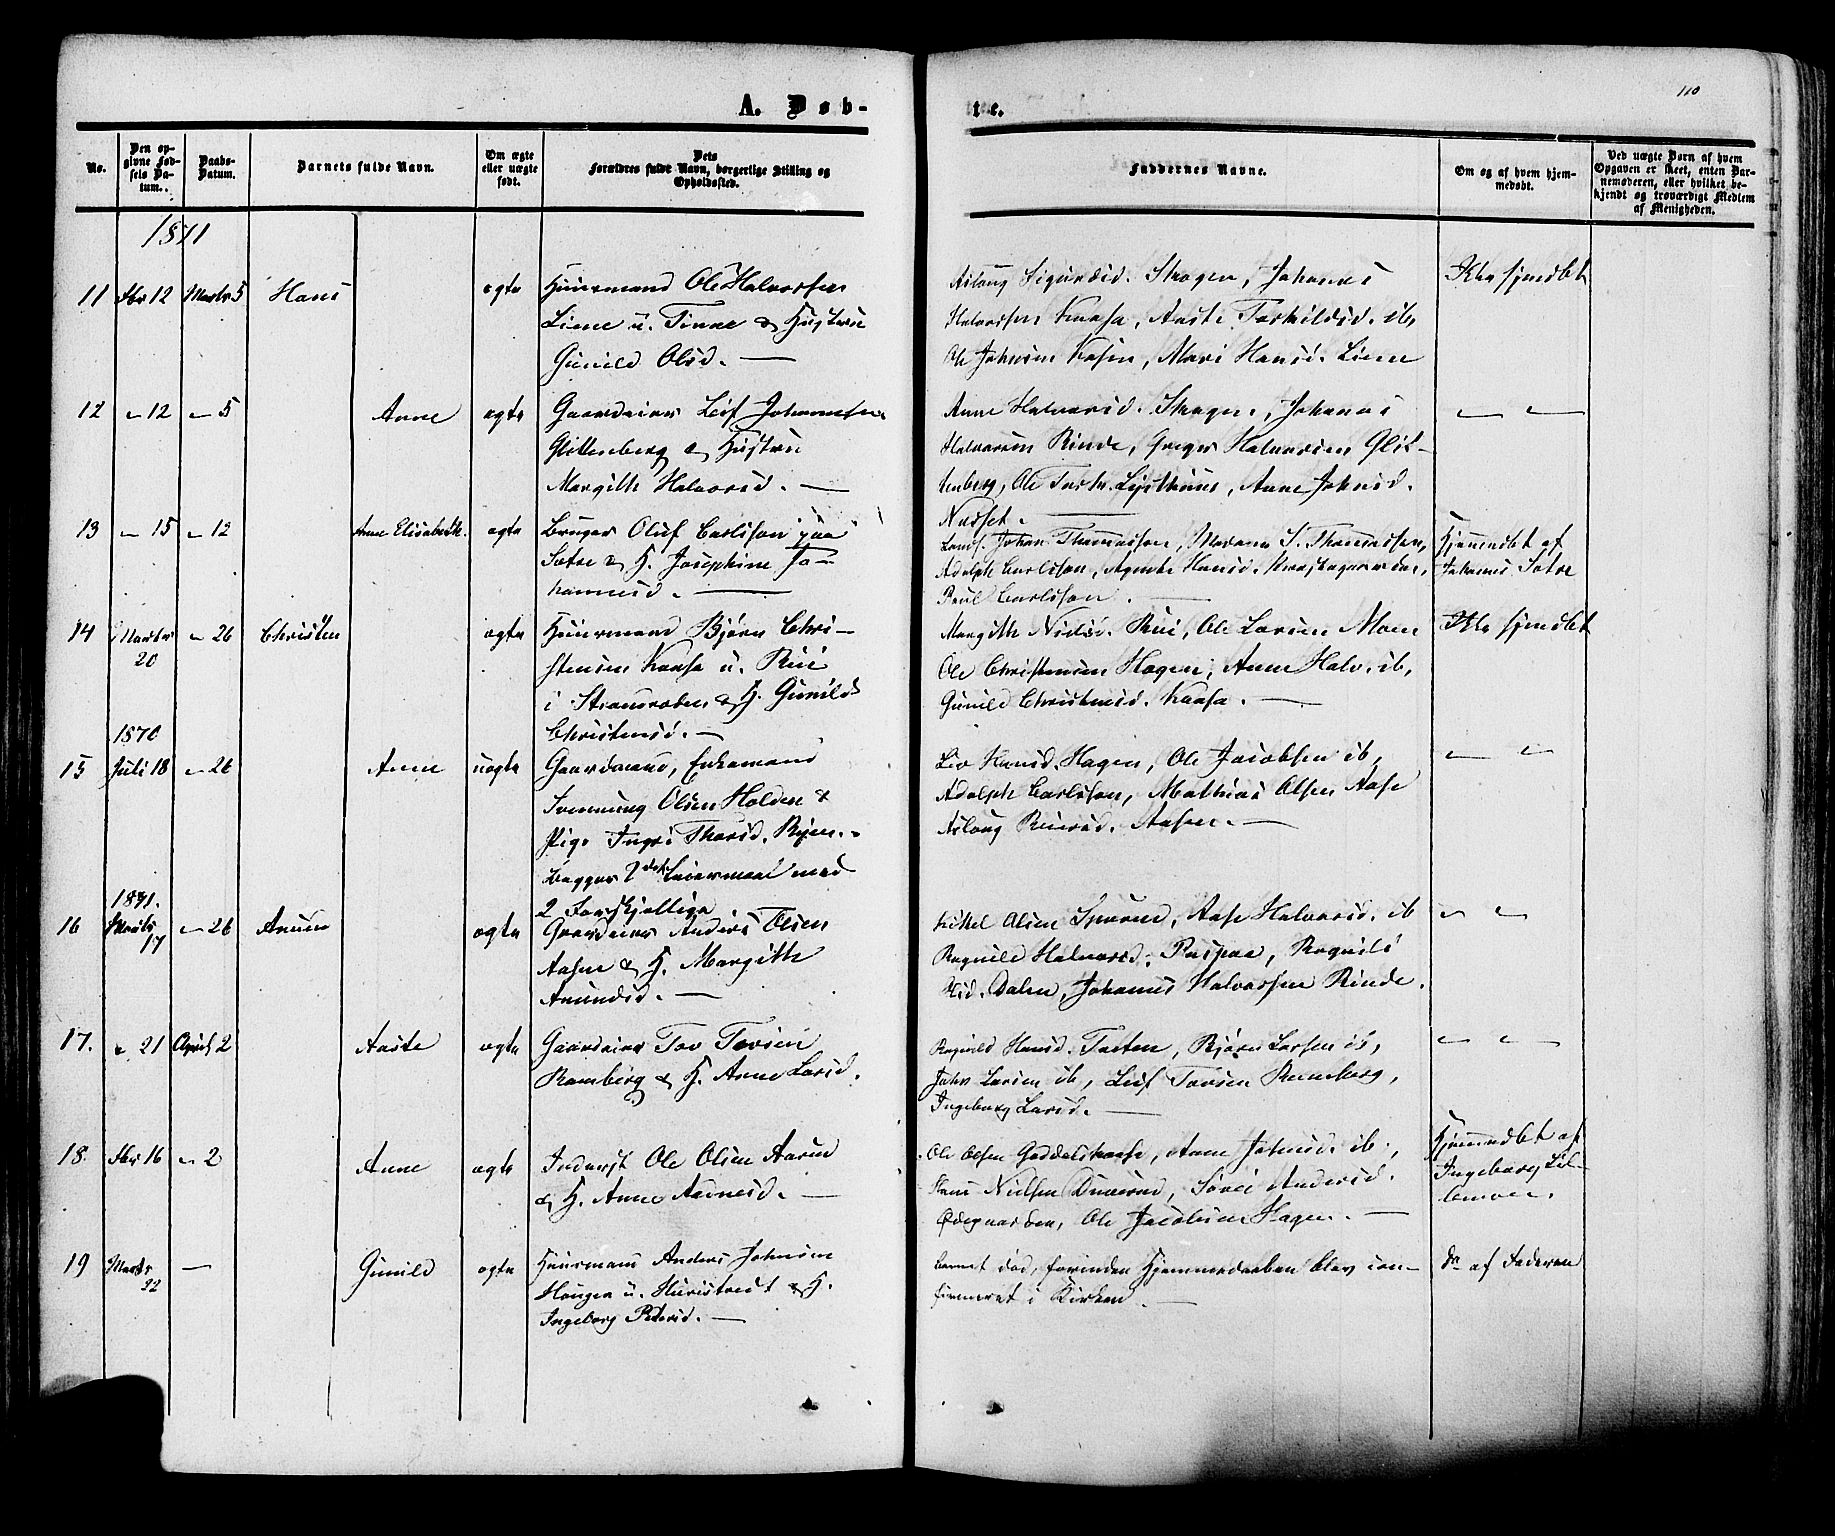 110
A. Døb-
te.
No.
Den op-
givne Fød-
sels Da-
tum.
Daabs-
Datum.
Barnets fulde Navn.
Om ægte
eller uægte
født.
Dets
Forældres fulde Navn, borgerlige Stilling og
Opholdssted.
Faddernes Navne.
Om og af hvem hjem-
medøbt.
Ved uægte Børn af hvem
Opgaven er skeet, enten Bar-
nemoderen, eller hvilket be-
kjendt og troværdigt Medlem
af Menigheden.
1871
11 Fbr 12 Marts 5 Hans ægte Huusmand Ole Halvorsen
Liene u. Tinne & Hustru
Gunild Olsd. —
Aslaug Sigurdsd. Skogen, Johannes
Halvorsen Kaasa, Aaste Torkildsd. ib,
Ole Johnsen Kaasin, Mari Hansd. Liene
Ikke hjemdøbt
12 — 12 — 5 Anne ægte Gaardeier Leif Johannesen
Glittenberg & Hustru
Margith Halvorsd. —
Anne Halvorsd. Skogen, Johannes
Halvorsen Rinde, Greger Halvorsen Glit-
tenberg, Ole Lysthuus, Anne Johnsd.
— —
13 — 15 — 12 Anne Elisabeth. ægte Bruger Oluf Carlsson paa
Sætre & H. Josephine Jo-
hannesd. —
Johan Thomassen, Mariane S. Thomassen,
Adolph Carlsson, Agnethe Hansd.
Paul Carlsson. —
Hjemmedøbt af
Johannes Sætre
14 Marts 20 — 26 Christen ægte Huusmand Bjørn Chri-
stensen Kaasa u. Rui
i & H. Gunild
Christensd. —
Margith Nielsd. Rui, Ole Larsen Moen
Ole Christensen Hagen, Anne Halv. ib,
Gunild Christensd. Kaasa. —
Ikke hjemdøbt
1870
15 Juli 18 — 26 Anne uægte Gaardmand, Enkemand
Svennung Olsen Holden &
Pige Ingri Thorsd.
Begges 2det Leiermaal med
2 Forskjellige
Liv Hansd. Hagen, Ole Jacobsen ib,
Adolph Carlsson, Mathias Olsen Aase
Aslaug Aasen. —
— —
1871.
16 Marts 17 — 26 Anund ægte Gaardeier Anders Olsen
Aasen & H. Margith
Anundsd. —
Kittel Olsen, Aase Halvorsd. ib
Ragnild Halvorsd., Ragnild
Dalen, Johannes Halvorsen Rinde.
— —
17. — 21 April 2 Aaste ægte Gaardeier Tov Tovsen
Ramberg & H. Anne Larsd.
Ragnild Hansd. Tveten, Bjørn Larsen ib,
John Larsen ib, Leif Tovsen Ramberg,
Ingeborg Larsd. —
— —
18. Fbr 16 — 2 Anne ægte Inderst Ole Olsen
& H. Anne Aanesd. —
Ole Olsen, Anne Johnsd. ib,
Hans Nielsen, Andersd.
Ødegaarden, Ole Jacobsen Hagen. —
Hjemmedøbt af
Ingeborg Lil-
lemoen.
19 Marts 22 — Gunild ægte Huusmand Anders Johnsen
Haugen u. & H.
Ingeborg Pedersd. —
Barnet død, forinden Hjemmedaaben blev con-
firmeret i Kirken. —
Do af Faderen